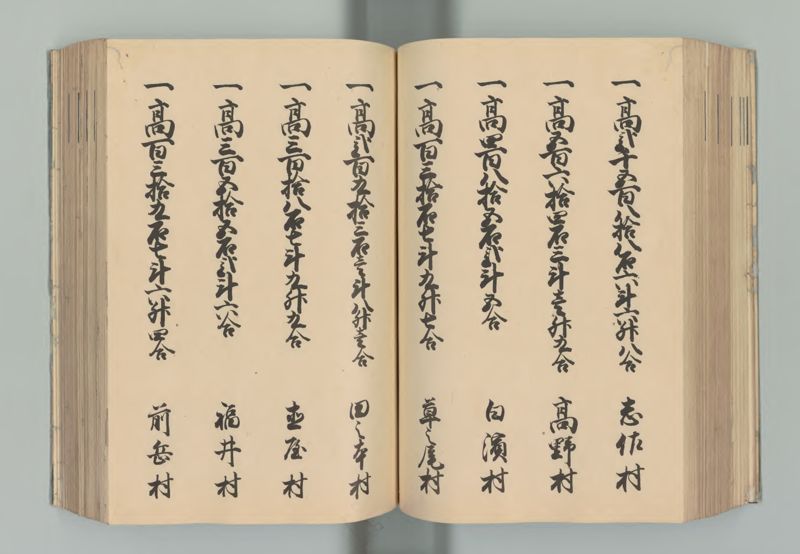 一高弐千五百八拾八石六斗六升八合 志佐村
一高五百六拾四石三斗壱升九合 高野村
一高四百八拾五石弐斗五合 白濱村
一高百三拾石七斗九升七合 草之尾村
一高弐百九拾三石壱斗八升壱合 田之本村
一高三百拾八石七斗九升九合 屋村
一高三百五拾五石弐斗六合 福井村
一高百三拾九石七斗六升四合 前岳村